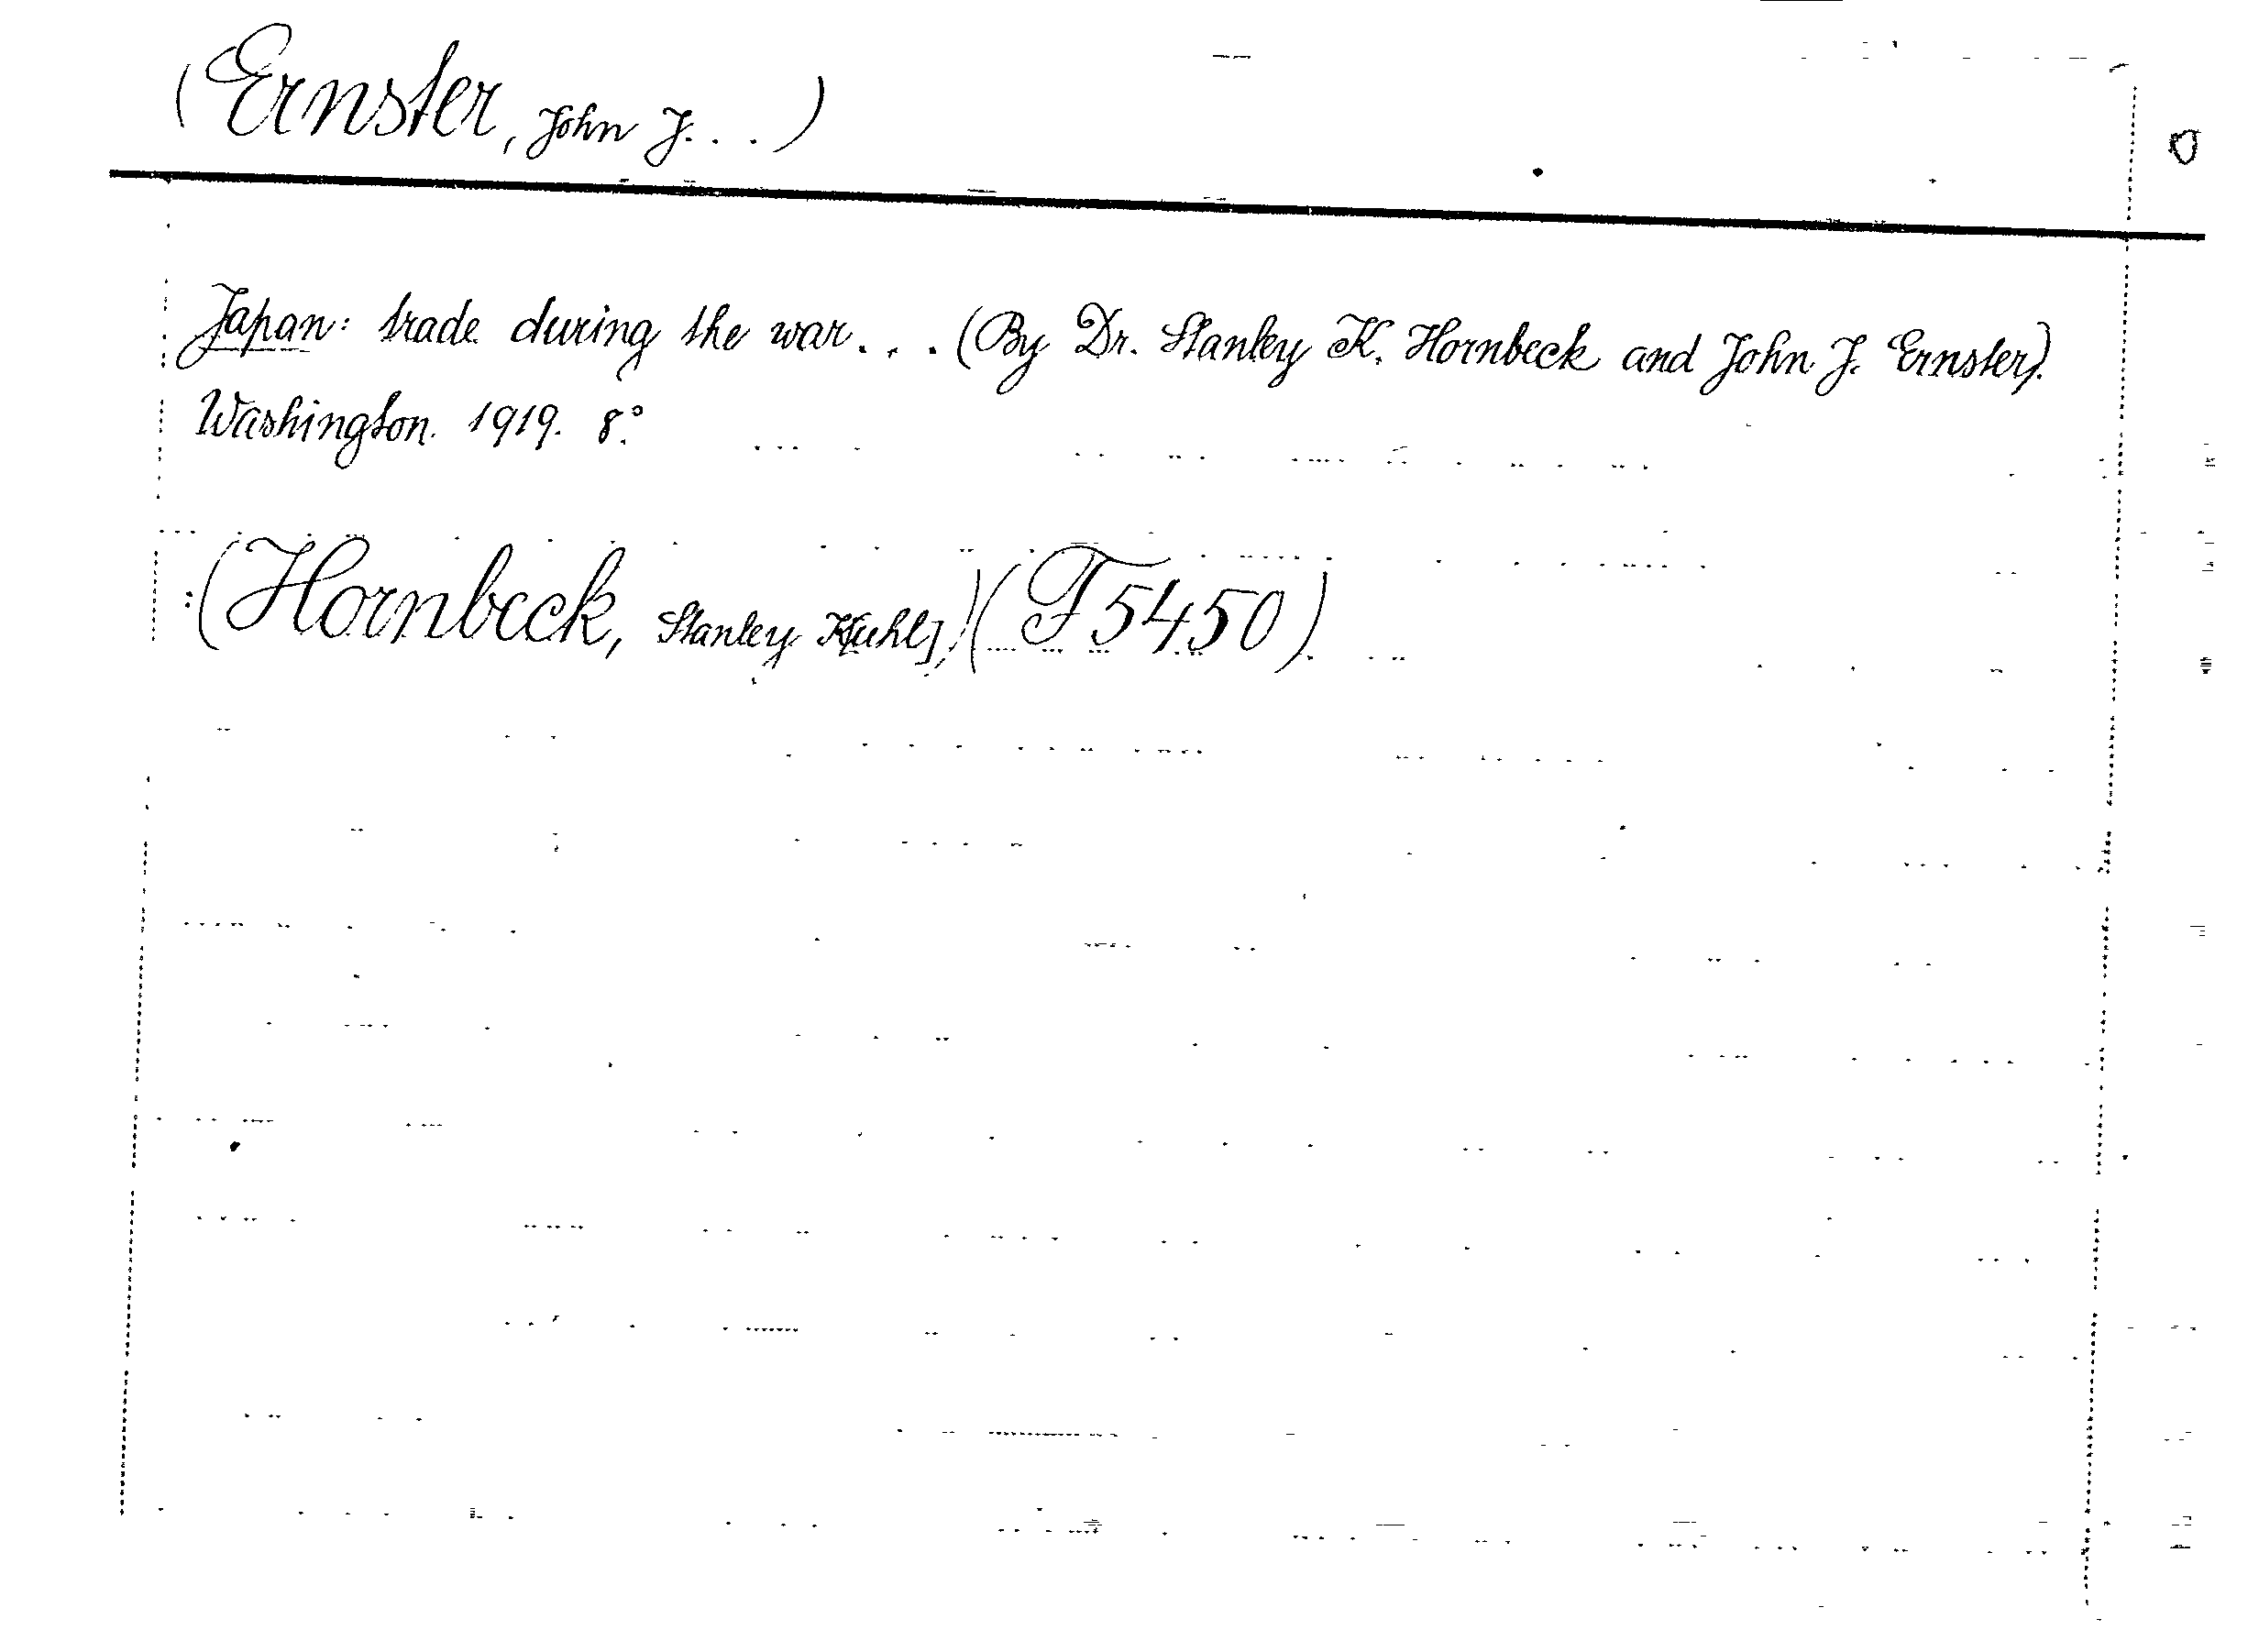 (Ernster, John J. . .)
Japan: trade during the war. . . (By Dr. Stanley K. Hornbeck and John J. Ernster).
Washington. 1919. 8°.
:(Hornbeck, Stanley K[uhl],)(F5450)